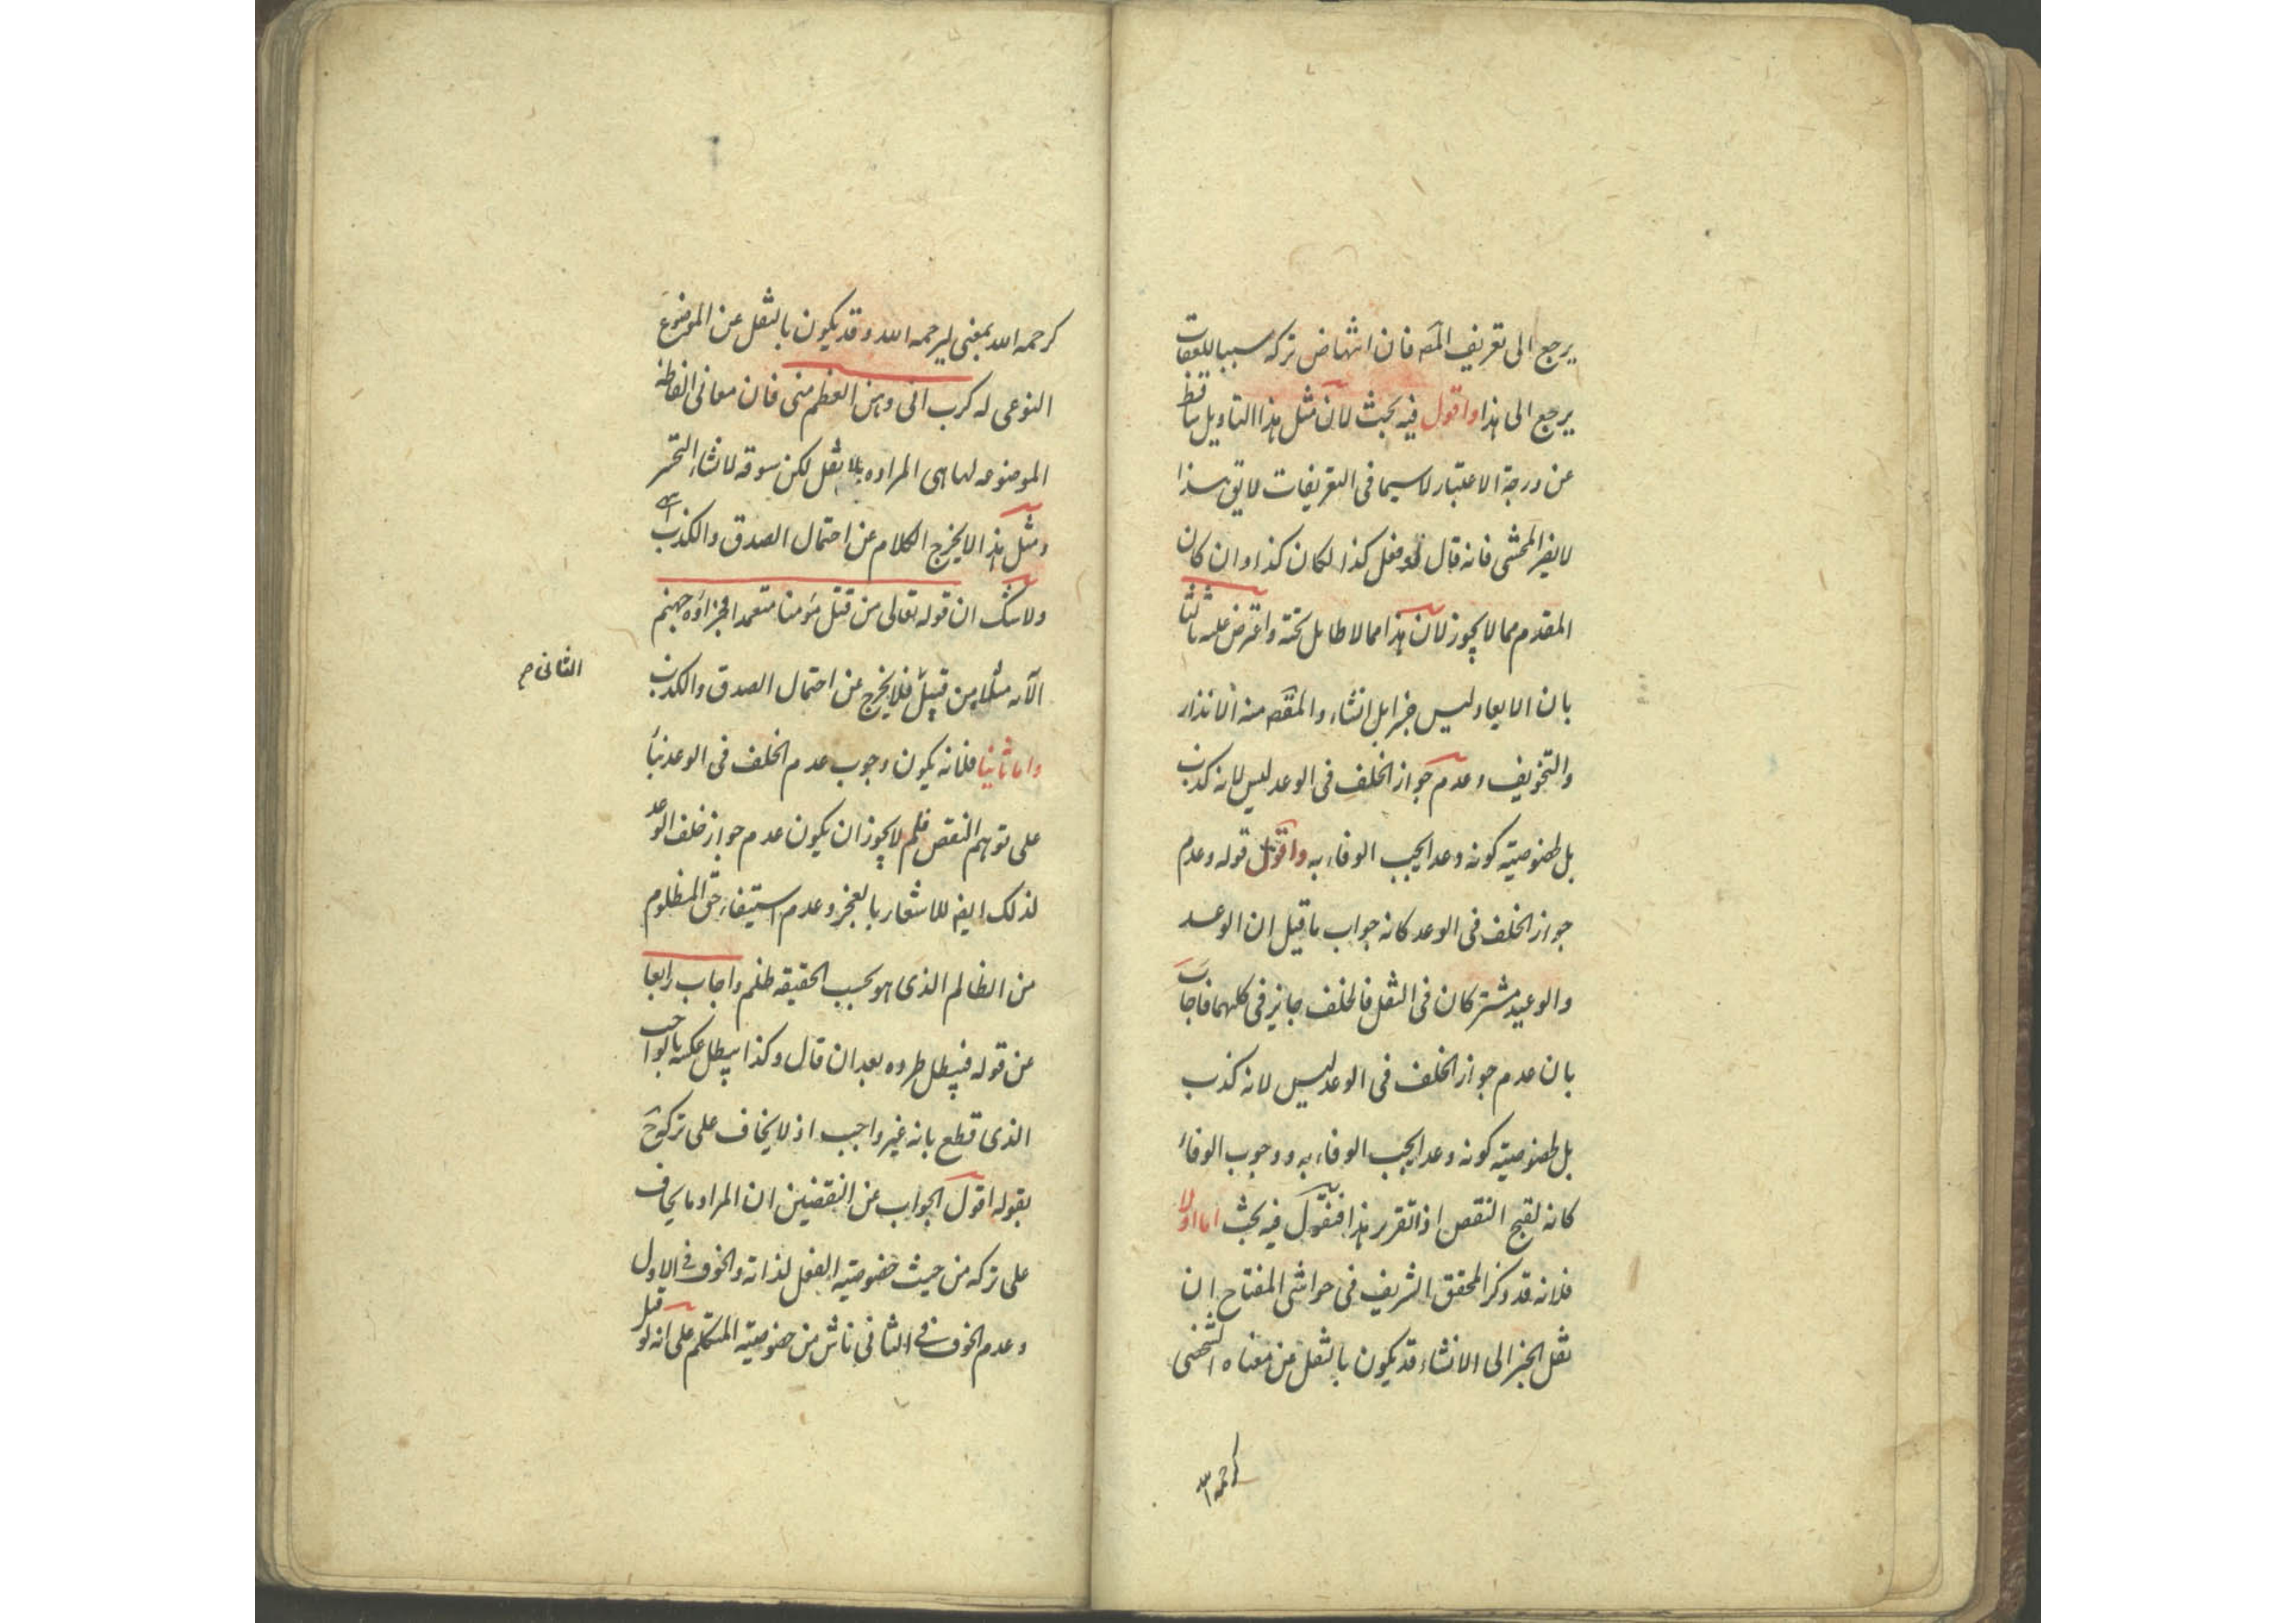 يرجع الى تعريف المص فان انتهاض تركه سببا للعقاب
يرجع الى هذا واقول فيه بحث لان مثل هذا التاويل ساقط
عن درجة الاعتبار لاسيما فى التعريفات لا يق هذا
لا يضر المحشى فانه قال لو فعل كذا لكان كذا وان كان
المقدم مما لا يجوز لان هذا مما لا طايل تحته واعترض عليه ثالثا
بان الايعاد ليس خبرا بل انشاء والمقص منه الانذار
والتخويف وعدم جواز الخلف فى الوعد ليس لانه كذب
بل لخصوصية كونه وعدا يجب الوفاء به واقول قوله وعدم
جواز الخلف فى الوعد كانه جواب ما قيل ان الوعد
والوعيد مشتركان فى النقل فالخلف جايز فى كليهما فاجاب
بان عدم جواز الخلف فى الوعد ليس لانه كذب
بل لخصوصية كونه وعدا يجب الوفاء به ووجوب الوفاء
كانه لقبح النقص اذا تقرر هذا فنقول فيه بحث اما اولا
فلانه قد ذكر المحقق الشريف فى حواشى المفتاح ان
نقل الخبر الى الانشاء قد يكون بالنقل عن معناه الشخصى
كرحمه الله
كرحمه الله بمعنى ليرحمه الله وقد يكون بالنقل عن الموضوع
النوعى له كرب انى وهن العظم منى فان معانى الفاظه
الموضوعه لها هى المراده بلا نقل لكن سوقه لانشاء التحسر
ومثل هذا لا يخرج الكلام عن احتمال الصدق والكذب
ولا شك ان قوله تعالى من قتل مؤمنا متعمدا فجزاؤه جهنم
الآيه مثلا من قبيل فلا يخرج عن احتمال الصدق والكذب
الثانى صح
واما ثانيا فلانه يكون وجوب عدم الخلف فى الوعد بناء
على توهم النقص فلم لا يجوز ان يكون عدم جواز خلف الوعد
لذلك ايض للاشعار بالعجز وعدم استيفاء حق المظلوم
من الظالم الذى هو بحسب الحقيقه ظلم واجاب رابعا
عن قوله فيبطل طرده بعد ان قال وكذا يبطل عكسه بالواجب
الذى قطع بانه غير واجب اذ لا يخاف على تركه
بقوله اقول الجواب عن النقضين ان المراد ما يخاف
على تركه من حيث خصوصية الفعل لذاته والخوف فى الاول
وعدم الخوف فى الثانى ناش من خصوصية المتكلم على انه لو قيل